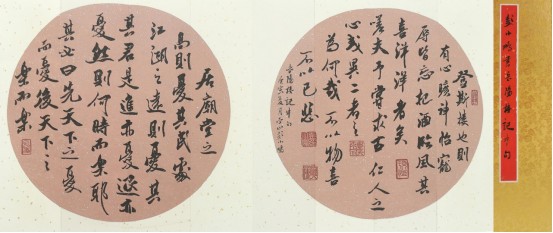 岳陽樓記中句
登斯樓也則
有心曠神怡寵
辱皆忘把酒臨風其
喜洋洋者矣
嗟夫予嘗求古仁人之
心或異二者之
為何哉不以物喜
不以己悲
岳陽樓記中句
居廟堂之
高則憂其民處
江湖之遠則憂其
其君是進亦憂退亦
憂然則何時而樂耶
其必曰先天下之憂
而憂後天下之
樂而樂